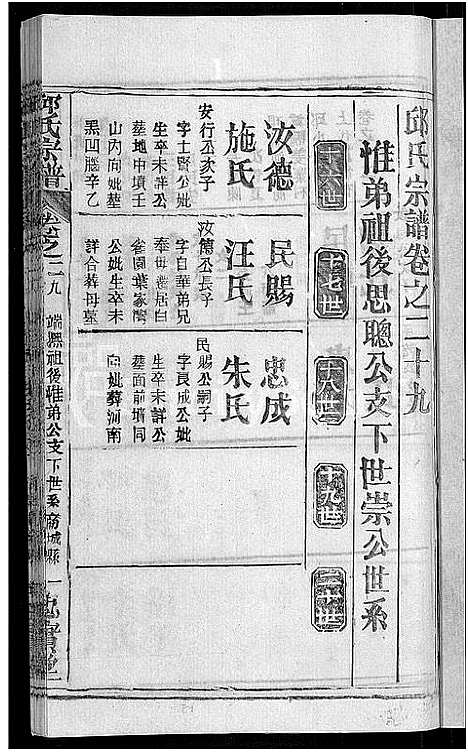 邱氏宗譜卷之二十九
惟弟祖後思聰公支下世崇公世系
十六世
十七世
十八世
十九世
二十世
汝德
施氏
安行公次子
字士賢公妣
生卒未詳公
墓地中墳壬
山丙向妣墓
黑凹腦辛乙
民賜
汪氏
汝德公長子
字自華弟兄
奉母遷居白
雀園葉家灣
公妣生卒未
詳合葬母墓
忠成
朱氏
民賜公嗣子
字良成公妣
生卒未詳公
墓面前墳同
向妣葬河南
邱氏宗譜
卷之二九
端熙祖後惟弟公支下世系商城縣
一